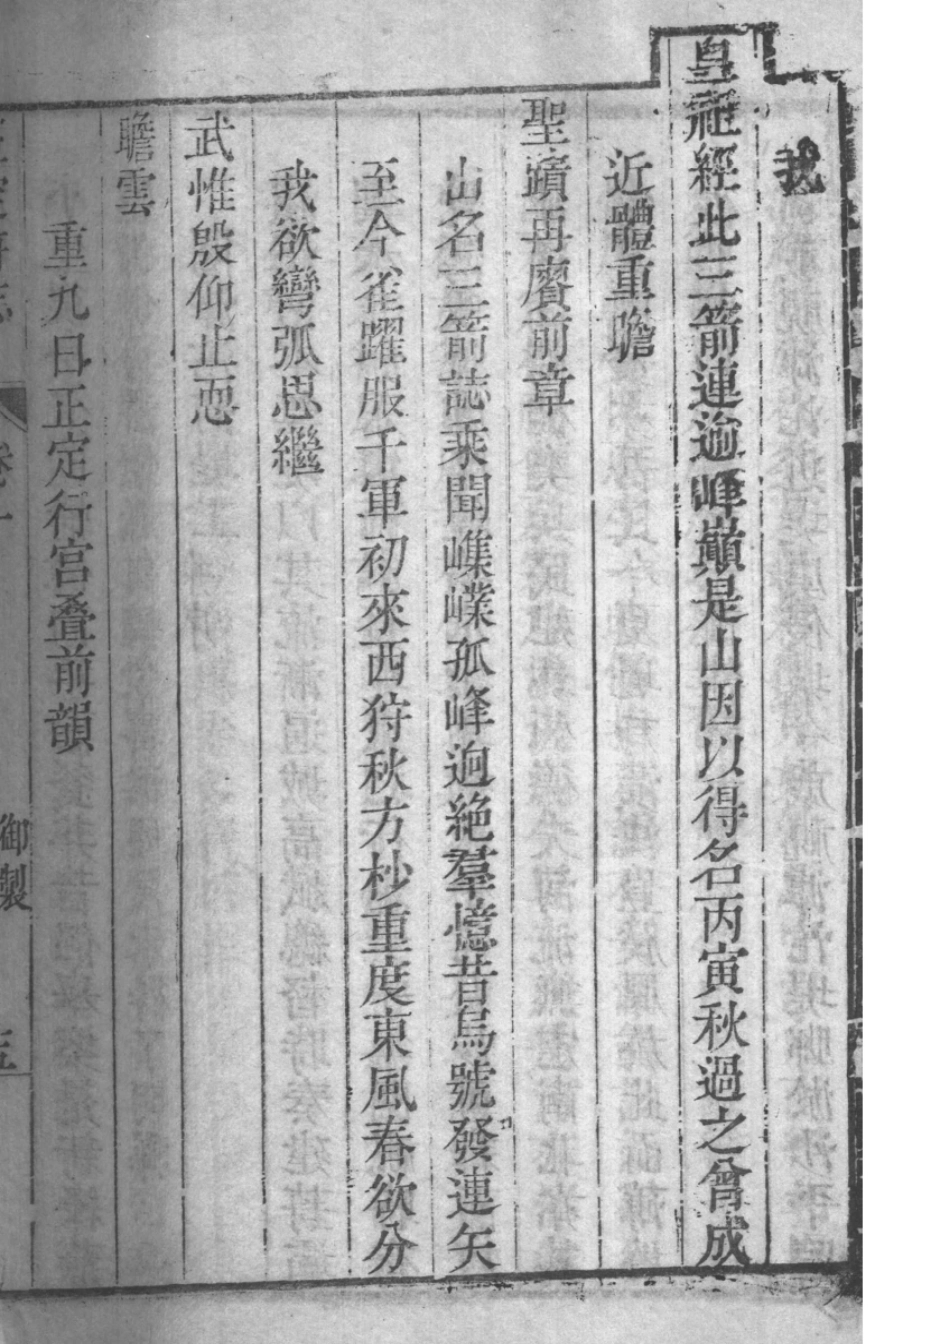 我
皇祖經此三箭連逾峰巔是山因以得名丙寅秋過之曾成
近體重瞻
聖蹟再賡前章
山名三箭誌乘聞嶕嶫孤峰逈絶羣憶昔烏號發連矢
至今雀躍服千軍初來西狩秋方杪重度東風春欲分
我欲彎弧思繼
武惟殷仰止恧
瞻雲
重九日正定行宮叠前韻
御製
五